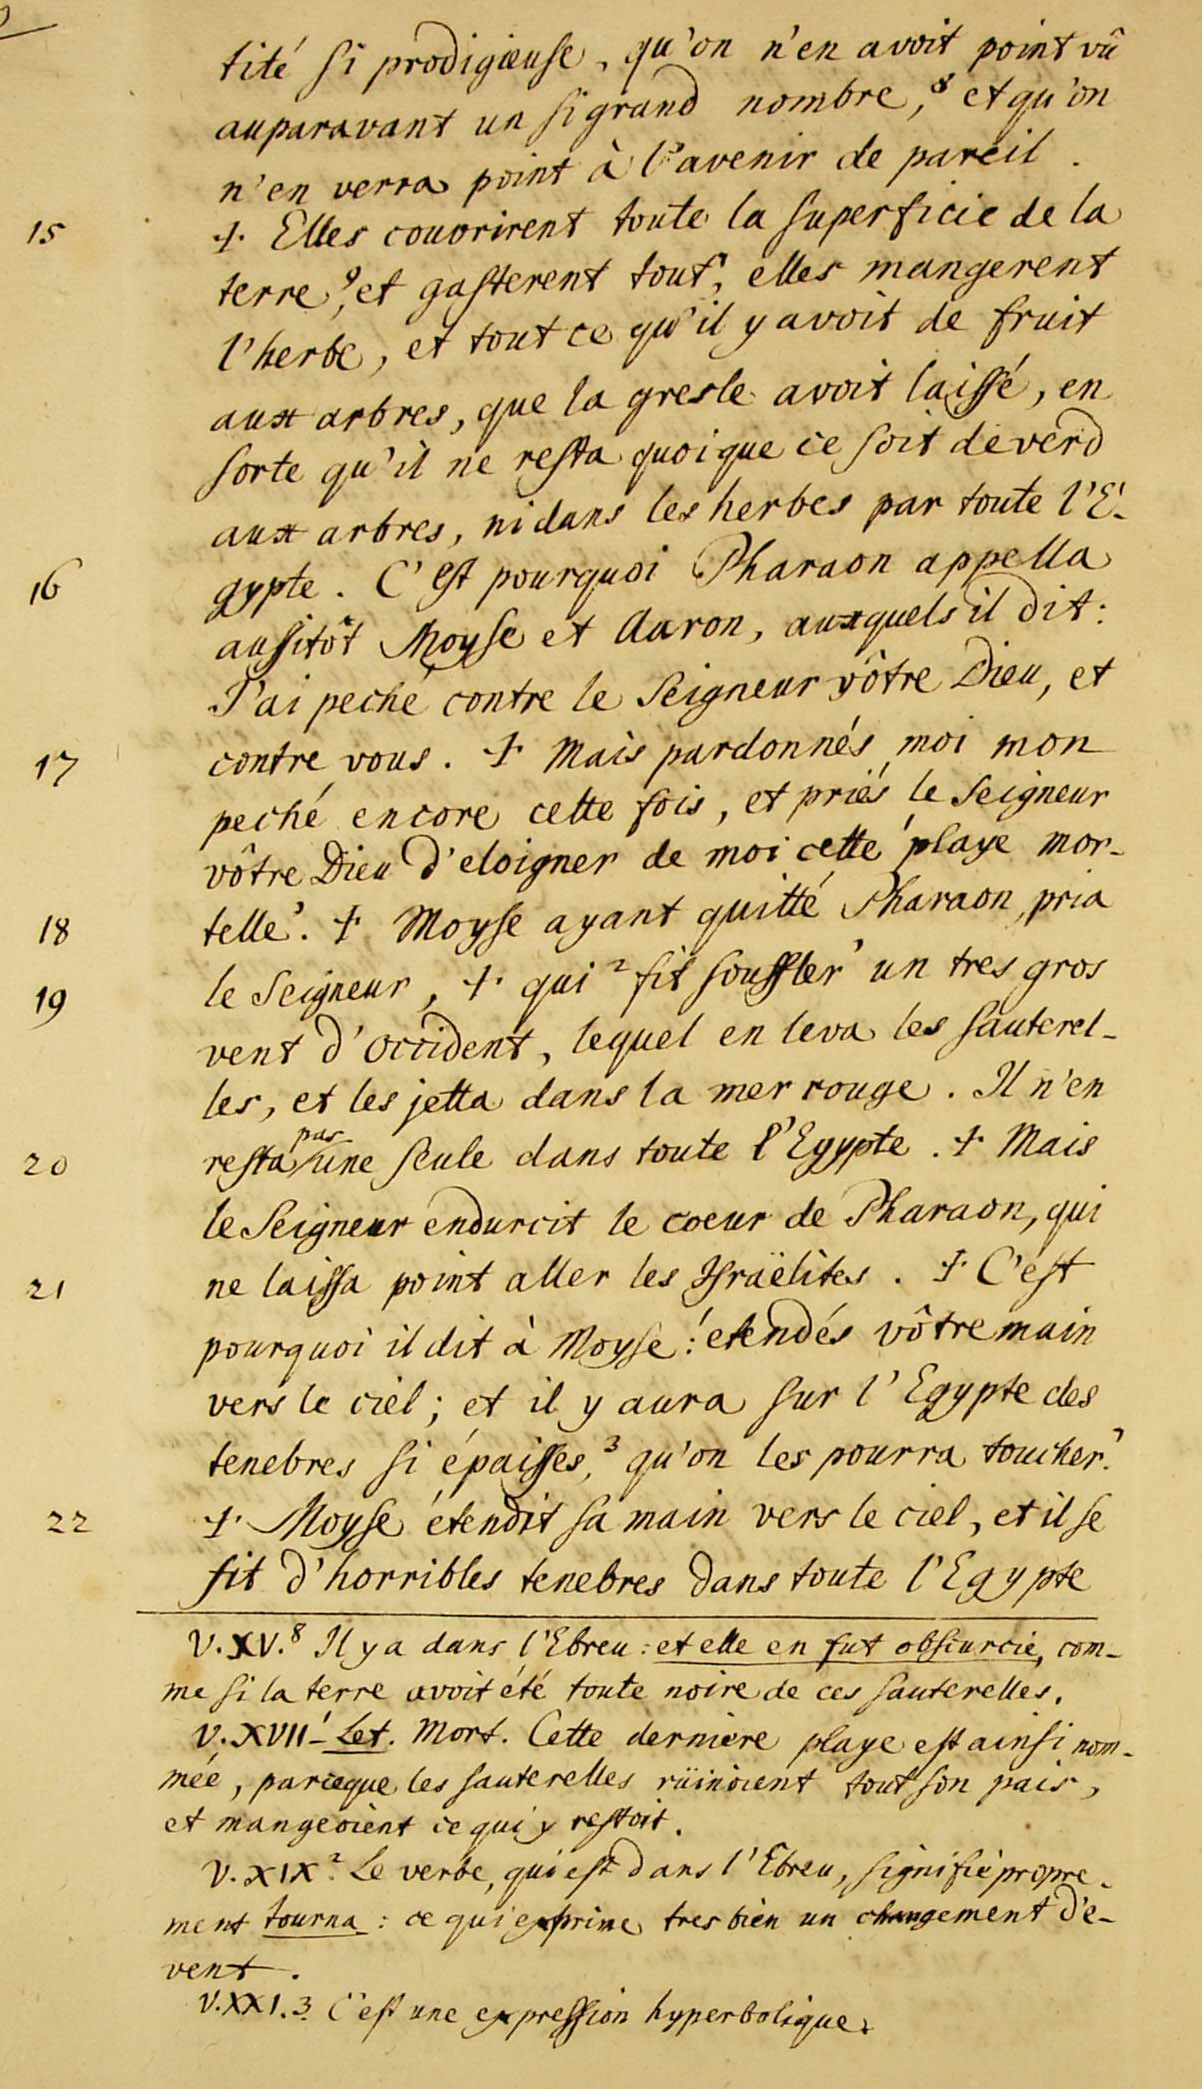 tité si prodigieuse, qu'on n'en avoit point vû
auparavant un si grand nombre,⁸ et qu'on
n'en verra point à l'avenir de pareil.
15 ⁒ Elles couvrirent toute la superficie de la
terre⁹, et gasterent tout', elles mangerent
l'herbe, et tout ce qu'il y avoit de fruit
aux arbres, que la gresle avoit laissé, en
sorte qu'il ne resta quoique ce soit de verd
aux arbres, ni dans les herbes par toute l'E-
16 gypte. C'est pourquoi Pharaon appella
aussitôt Moyse et Aaron, auxquels il dit:
J'ai peché contre le Seigneur vôtre Dieu, et
17 contre vous. ⁒ Mais pardonnés moi mon
peché encore cette fois, et priés le Seigneur
vôtre Dieu d'eloigner de moi cette ¹playe mor-
18 telle'. ⁒ Moyse ayant quitté Pharaon, pria
19 le Seigneur, ⁒ qui ²fit souffler' un tres gros
vent d'occident, lequel enleva les sauterel-
les, et les jetta dans la mer rouge. Il n'en
20 resta pas une seule dans toute l'Egypte. ⁒ Mais
le Seigneur endurcit le coeur de Pharaon, qui
21 ne laissa point aller les Israëlites. ⁒ C'est
pourquoi il dit à Moyse: étendés vôtre main
vers le ciel; et il y aura sur l'Egypte des
tenebres si épaisses, ³ qu'on les pourra toucher'.
22 ⁒ Moyse étendit sa main vers le ciel, et il se
fit d'horribles tenebres dans toute l'Egypte
V.XV.⁸ Il y a dans l'Ebreu: et elle en fut obscurcie, com-
me si la terre avoit été toute noire de ces sauterelles.
V.XVII ¹ Let. Mort. Cette derniere playe est ainsi nom-
mée, parceque les sauterelles rüinoient tout son païs,
et mangeoient ce qui y restoit.
V.XIX.² Le verbe, qui est dans l'Ebreu, signifie propre-
ment tourna: ce qui exprime tres bien un changement d'e-
vent.
V.XXI.3. C'est une expression hyperbolique.